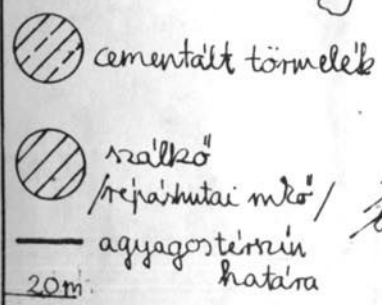 cementált törmelék
szálkő
/répáshutai mkő/
agyagos térszín
határa
20m